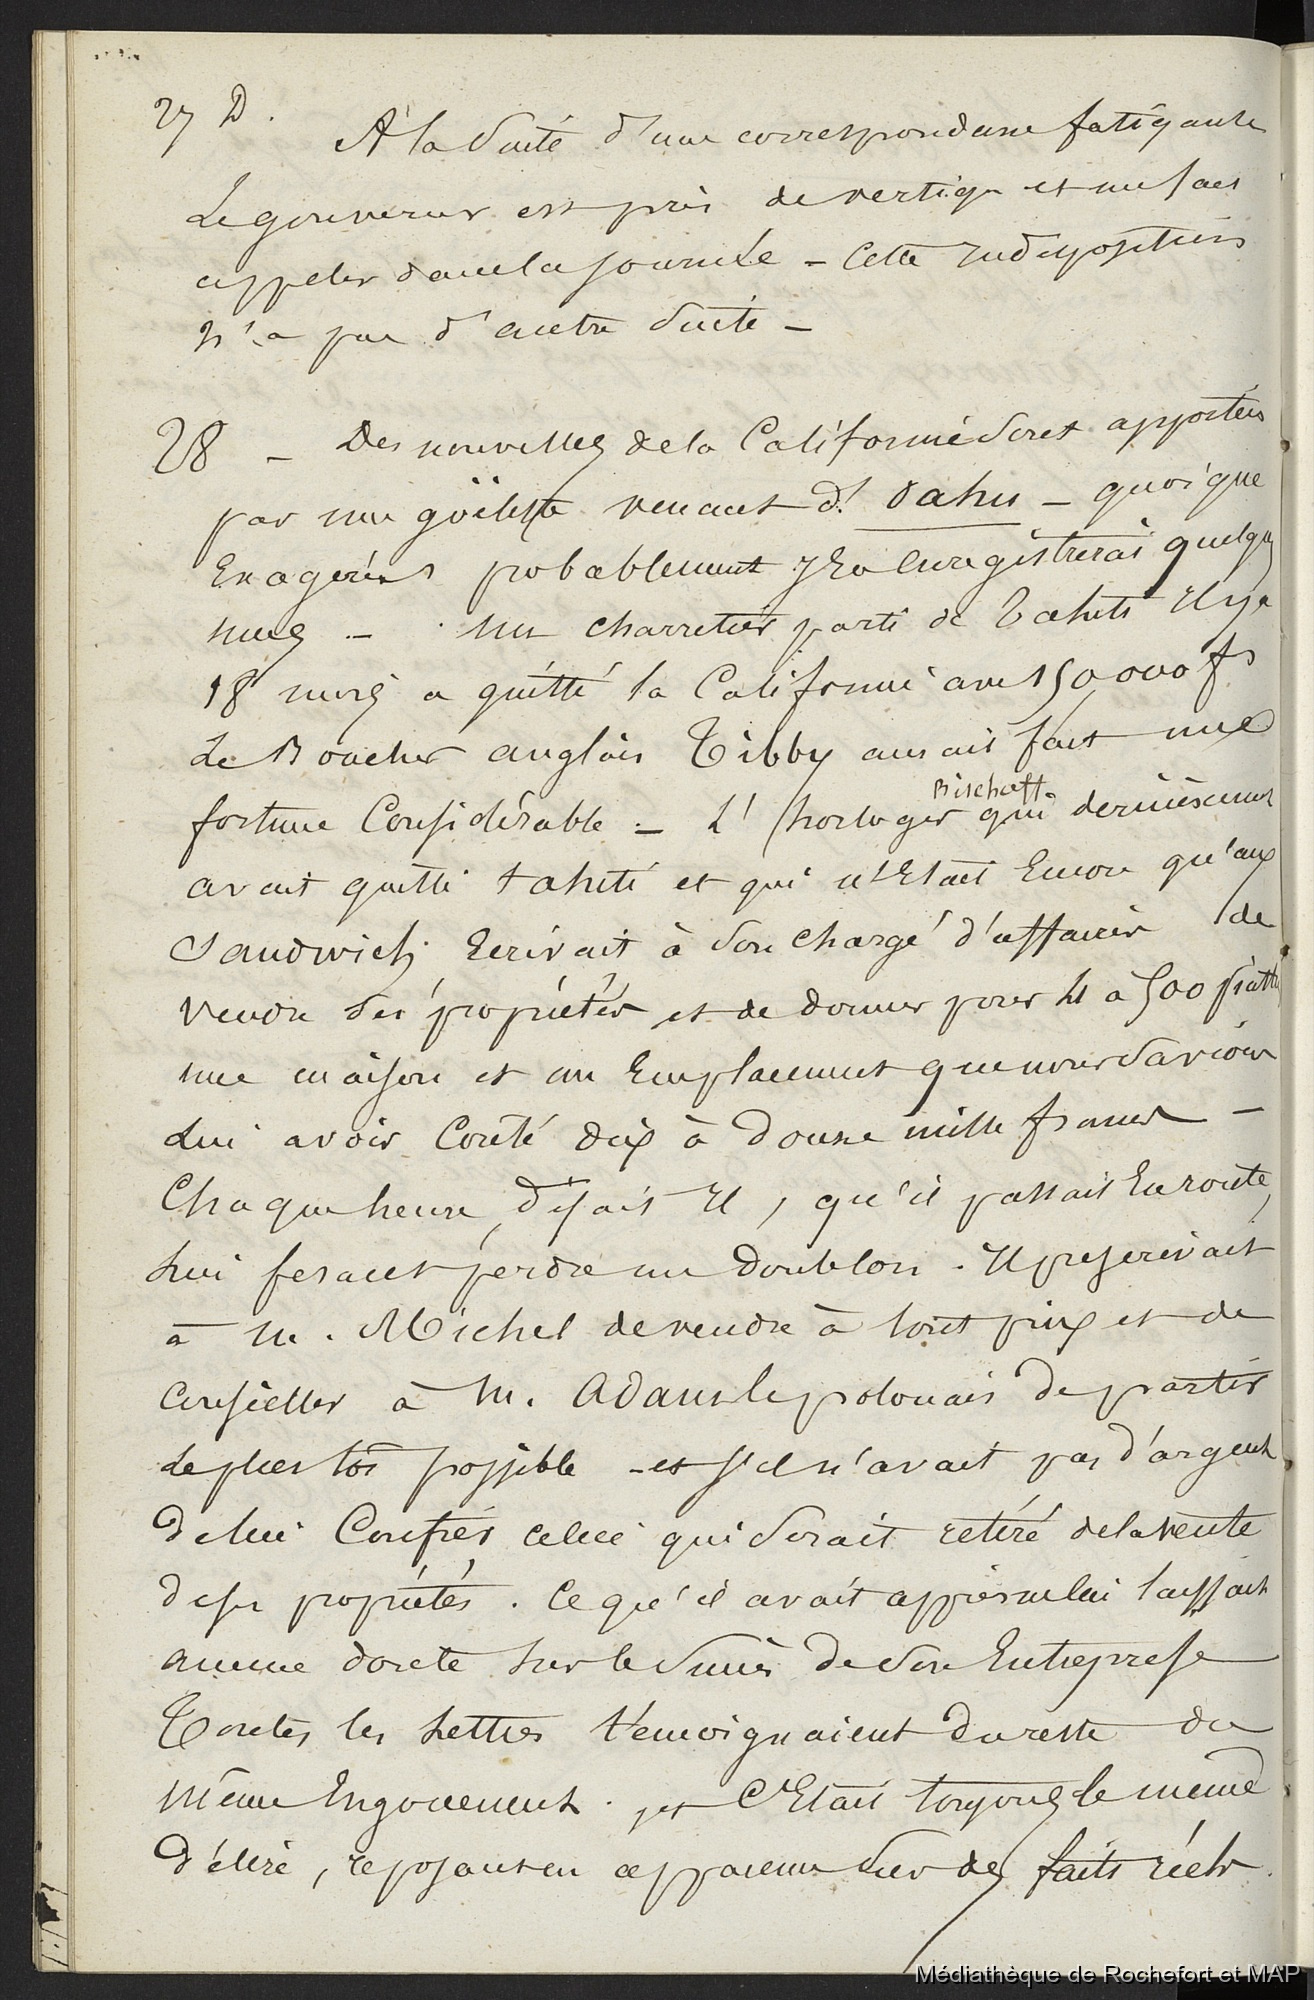 27 D.
A la Suite d'une correspondance fatigante
Le gouverneur est pris de vertige et me fait
appeler dans la journée - Cette Indisposition
n'a pas d'autre Suite -
28 - Des nouvelles de la Californie Sont apportées
par une göelette venant d' Oahu - quoique
Exagérées probablement j'En Enregistrerai quelques
unes - un charretier parti de Tahiti Il y a
18 mois a quitté la Californie avec 150,000 fs
Le Boucher anglais Tibby aurait fait une
fortune Considérable - L' horloger Bischoff qui dernièrement
avait quitté tahiti et qui n'Etait Encore qu'aux
Sandwich, Ecrivait à Son chargé d'affaires de
vendre Ses propriétés et de donner pour 4 à 500 piastres
une maison et un Emplacement que nous Savions
Lui avoir Couté dix à douze mille francs -
Chaque heure, disait Il, qu'il passait En route,
lui fesait perdre un Doublon. Il prescrivait
à M. Michel de vendre à tout prix et de
Conseiller à M. Adam le polonais de partir
Le plus tôt possible - et s'il n'avait pas d'argent
De lui Confier celui qui Serait retiré de la vente
de ses propriétés. Ce qu'il avait appris ne lui laissait
aucune doute Sur le Succès de Son Entreprise
Toutes les Lettres témoignaient du reste du
même Engouement. et C'Etait toujours le même
délire, reposant en apparence Sur des faits réels.
Médiathèque de Rochefort et MAP